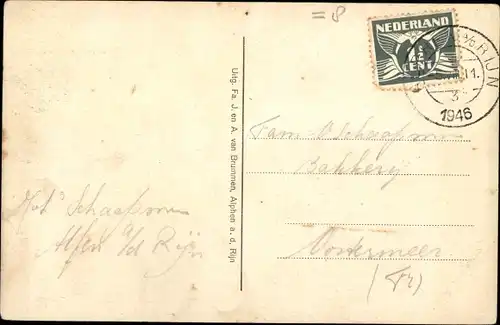 = 8
NEDERLAND
CENT
A/D RIJN
11.
3
1946
Uitg. Fa. J. en A. van Brummen, Alphen a. d. Rijn
Fam. Schaapman
Bakkerij
Oostermeer
(Fr)
Schaapman
Alfen a/d Rijn